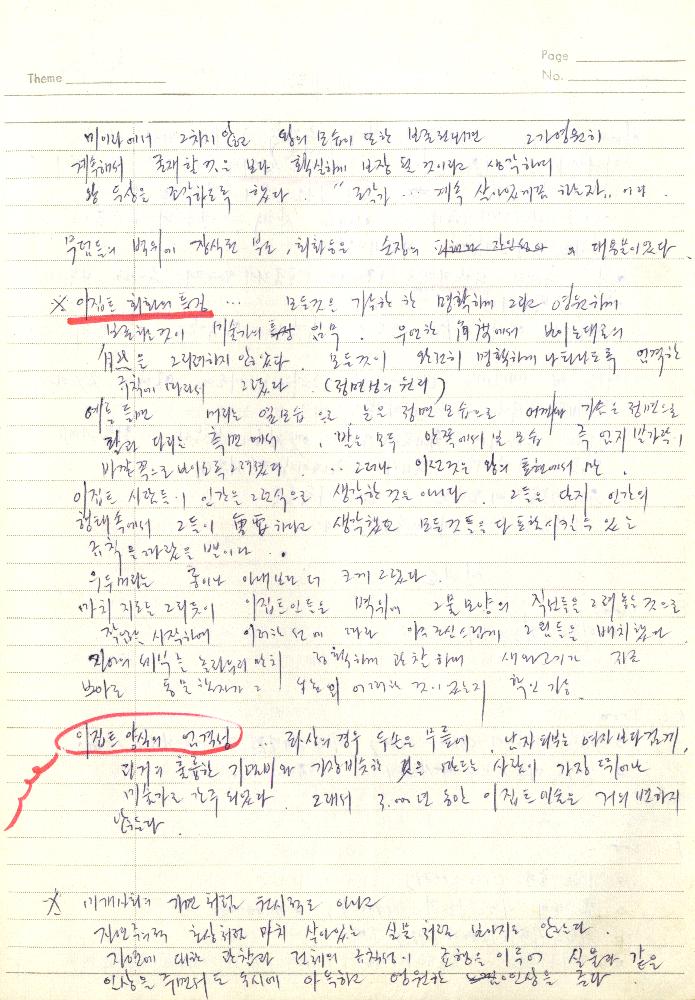 Page
Theme
No.
미이라에서 그치지 않고 왕의 모습이 또한 보존된다면 그가 영원히
계속해서 존재할 것을 보다 확실하게 보장 될 것이라고 생각하여
왕 두상을 조각하도록 했다. "조각가 … 계속 살아있게끔 하는자" 이다.
무덤들의 벽위에 장식된 부조, 회화들은 순장의 의 대용물이었다
※ 이집트 회화의 특징 … 모든것은 가능한 한 명확하게 그리고 영원하게
보존하는것이 미술가의 임무. 우연한 角度에서 보이는대로의
自然을 그리려하지 않았다. 모든것이 완전히 명확하게 나타나도록 엄격한
규칙에 따라서 그렸다 (정면성의 원리)
예를 들면 머리는 옆모습으로 눈은 정면 모습으로 어깨와 가슴은 정면으로
팔과 다리는 측면에서, 발은 모두 안쪽에서 본 모습 즉 엄지 발가락이
바깥쪽으로 보이도록 그려졌다. … 그러나 이런것은 왕의 표현에서만.
이집트 사람들이 인간을 그런식으로 생각한 것은 아니다. 그들은 단지 인간의
형태속에서 그들이 重要하다고 생각했던 모든것들을 다 포함시킬 수 있는
규칙을 따랐을 뿐이다.
우두머리는 종이나 아내보다 더 크게 그렸다.
마치 지도를 그리듯이 이집트인들은 벽위에 그물모양의 직선들을 그려 놓는 것으로
작업을 시작하여 이러한 선에 따라 아주 조심스럽게 그림들을 배치했다
자연의 세부를 놀라우리만치 정확하게 관찰하며 새와 고기가 지금
보아도 동물학자가 그 어떠한 것이었는지 확인 가능.
이집트 양식의 엄격성 … 좌상의 경우 두손은 무릎에, 남자피부는 여자보다 검게,
과거의 훌륭한 기념비와 가장 비슷한 것을 만드는 사람이 가장 뛰어난
미술가로 간주 되었다. 그래서 3,000년 동안 이집트미술은 거의 변하지
않는다.
※ 미개사회의 가면처럼 원시적도 아니고
자연주의적 초상처럼 마치 살아있는 실물처럼 보이지도 않는다.
자연에 대한 관찰과 전체의 규칙성이 균형을 이루어 실물과 같은
인상을 주면서도 동시에 아득하고 영원한 인상을 준다.